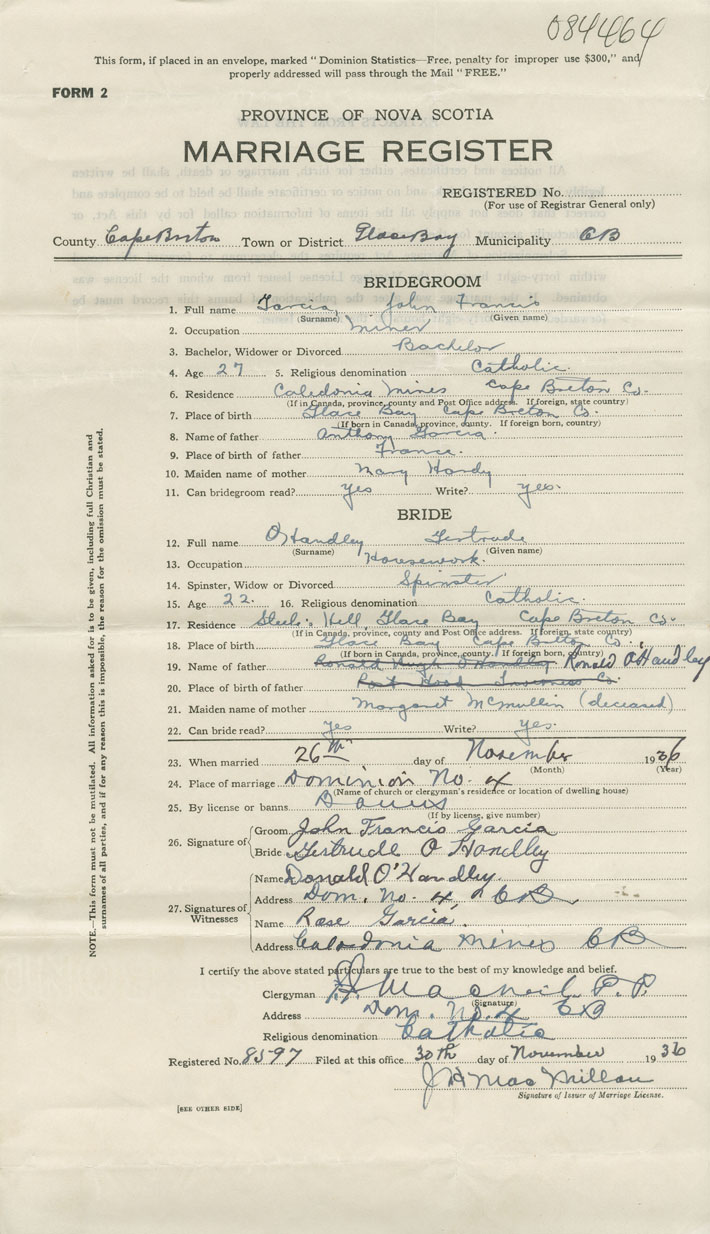 084464
This form, if placed in an envelope, marked "Dominion Statistics—Free, penalty for improper use $300," and
properly addressed will pass through the Mail "FREE."
FORM 2
PROVINCE OF NOVA SCOTIA
MARRIAGE REGISTER
REGISTERED No.
(For use of Registrar General only)
County Cape Breton Town or District Glace Bay Municipality CB
BRIDEGROOM
1. Full name Garcia John Francis
(Surname) (Given name)
2. Occupation miner
3. Bachelor, Widower or Divorced Bachelor
4. Age 27 5. Religious denomination Catholic.
6. Residence Caledonia Mines Cape Breton Co.
(If in Canada, province, county and Post Office address. If foreign, state country)
7. Place of birth Glace Bay Cape Breton Co.
(If born in Canada, province, county. If foreign born, country)
8. Name of father Anthony Garcia.
9. Place of birth of father France.
10. Maiden name of mother Mary Hardy
11. Can bridegroom read? yes Write? yes.
BRIDE
12. Full name O'Handley Gertrude
(Surname) (Given name)
13. Occupation Housework.
14. Spinster, Widow or Divorced Spinster
15. Age 22. 16. Religious denomination Catholic.
17. Residence Steele's Hill, Glace Bay Cape Breton Co.
(If in Canada, province, county and Post Office address. If foreign, state country)
18. Place of birth Glace Bay Cape Breton Co.
(If born in Canada, province, county. If foreign born, country)
19. Name of father Ronald Hugh O'Handley Ronald O'Handley
20. Place of birth of father Port Hood Inverness Co.
21. Maiden name of mother Margaret McMullin (deceased)
22. Can bride read? yes Write? yes.
23. When married 26th day of November 1936
(Month) (Year)
24. Place of marriage Dominion No. 4
(Name of church or clergyman's residence or location of dwelling house)
25. By license or banns Banns
(If by license, give number)
26. Signature of
Groom John Francis Garcia
Bride Gertrude O Handley
27. Signatures of Witnesses
Name Donald O'Handley.
Address Dom. No. 4, CB
Name Rose Garcia.
Address Caledonia Mines CB
I certify the above stated particulars are true to the best of my knowledge and belief.
Clergyman MacNeil P.P.
(Signature)
Address Dom. No. 4 CB
Religious denomination Catholic
Registered No. 8597 Filed at this office 30th day of November 1936
J H MacMillan
Signature of Issuer of Marriage License.
[SEE OTHER SIDE]
NOTE.—This form must not be mutilated. All information asked for is to be given, including full Christian and
surnames of all parties, and if for any reason this is impossible, the reason for the omission must be stated.